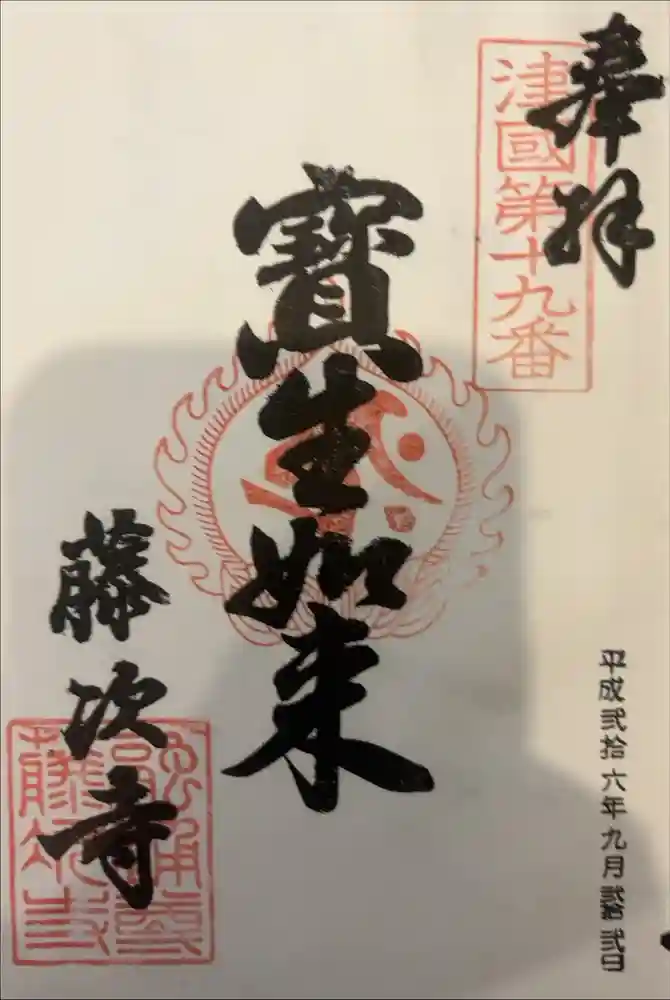 奉拝
津國第十九番
寶生如来
藤次寺
平成弐拾六年九月弐拾弐日